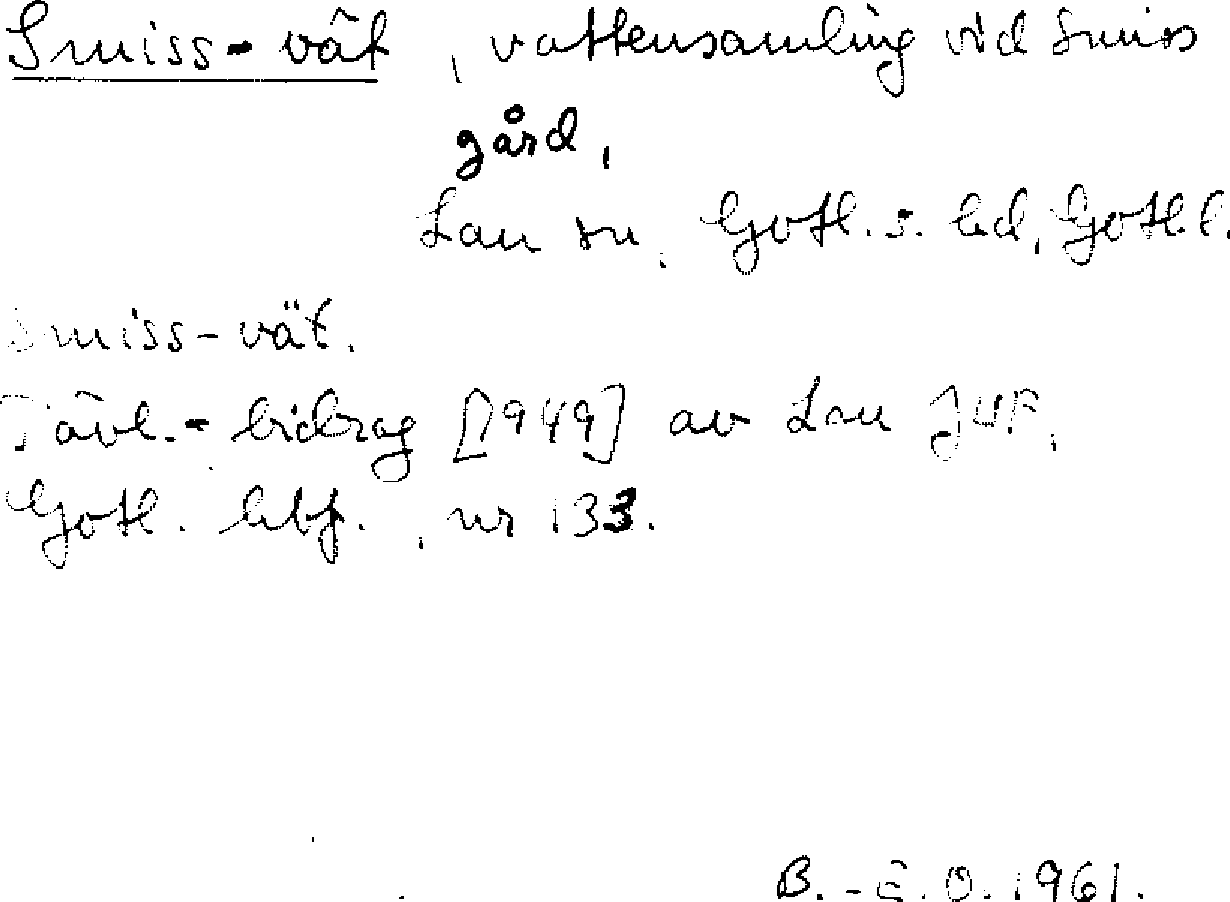 Smiss-vät, vattensamling vid Smiss
gård,
Lau sn, Gotl. s. hd, Gotl. l.
Smiss-vät.
Tävl.-bidrag [1949] av Lau JUF,
Gotl. hbf., nr 133.
B.-E.O. 1961.